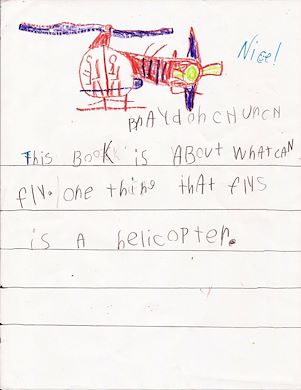 Nice!
BRAYdOn CHURCH
This BOOK is ABOUT WHAT CAN
fly. one thing tHAt flys
is A helicopter.